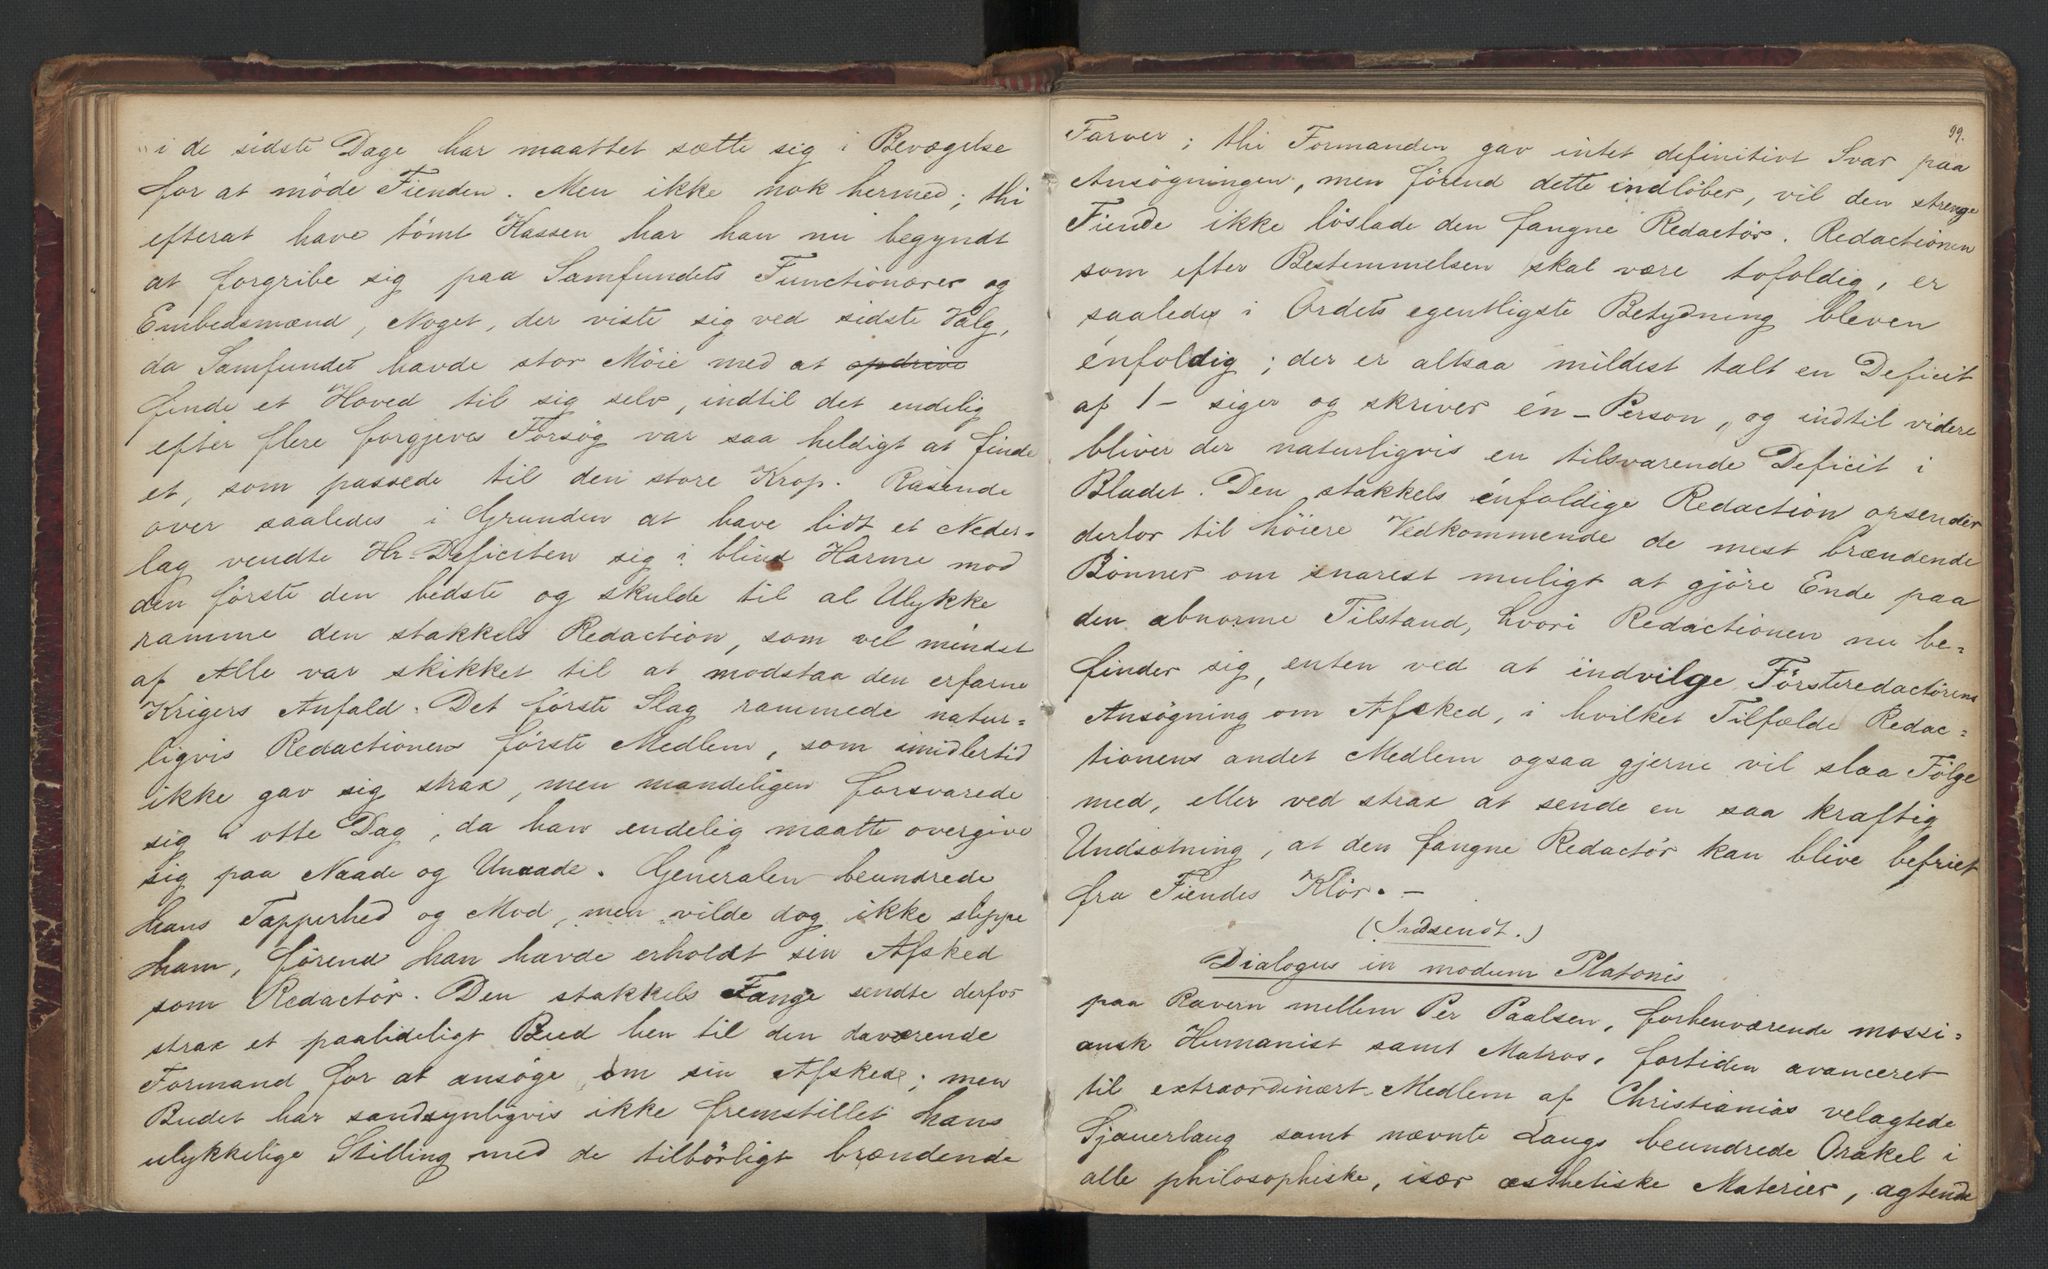 i de sidste Dage har maattet sætte sig i Bevægelse
for at møde Fienden. Men ikke nok hermed; thi
efterat have tömt Kassen har han nu begyndt
at forgribe sig paa Samfundets Functionærer og
Embedsmænd, Noget, der viste sig ved sidste Valg,
da Samfundet havde stor Möie med at opdrive
finde et Hoved til sig selv, indtil det endelig
efter flere forgjeves Forsög var saa heldigt at finde
et, som passede til den store Krop. Rasende
over saaledes i Grunden at have lidt et Neder-
lag vendte Hr. Deficiten sig i blind Harme mod
den förste den bedste og skulde til al Ulykke
ramme den stakkels Redaction, som vel mindst
af Alle var skikket til at modstaa den erfarne
Krigers Anfald. Det förste Slag rammede natur-
ligvis Redactionens förste Medlem, som imidlertid
ikke gav sig strax, men mandeligen forsvarede
sig i otte Dag, da han endelig maatte overgive
sig paa Naade og Unaade. Generalen beundrede
hans Tapperhed og Mod, men vilde dog ikke slippe
ham, förend han havde erholdt sin Afsked
som Redactör. Den stakkels Fange sendte derfor
strax et paalideligt Bud hen til den daværende
Formand for at ansöge om sin Afsked; men
Budet har sandsynligvis ikke fremstillet hans
ulykkelige Stilling med de tilbörligt brændende
99.
Farver; thi Formanden gav intet definitivt Svar paa
Ansögningen, men förend dette indlöber, vil den strenge
Fiende ikke löslade den fangne Redactör. Redactionen
som efter Bestemmelsen skal være tofoldig, er
saaledes i Ordets egentligste Betydning bleven
énfoldig; der er altsaa mildest talt en Deficit
af 1 - siger og skriver én - Person, og indtil videre
bliver der naturligvis en tilsvarende Deficit i
Bladet. Den stakkels énfoldige Redaction opsender
derfor til höiere Vedkommende de mest brændende
Bönner om snarest muligt at gjöre Ende paa
den abnorme Tilstand, hvori Redactionen nu be-
finder sig, enten ved at indvilge Försteredactörens
Ansögning om Afsked, i hvilket Tilfælde Redac-
tionens andet Medlem ogsaa gjerne vil slaa Fölge
med, eller ved strax at sende en saa kraftig
Undsætning, at den fangne Redactör kan blive befriet
fra Fiendes Klör. -
(Indsendt.)
Dialogus in modum Platonis
paa Ravern mellem Per Paalsen, forhenværende mossi-
ansk Humanist samt Matros, fortiden avanceret
til extraordinært Medlem af Christianias velagtede
Sjauerlaug samt nævnte Laugs beundrede Orakel i
alle philosophiske, især æsthetiske Materier, agtende